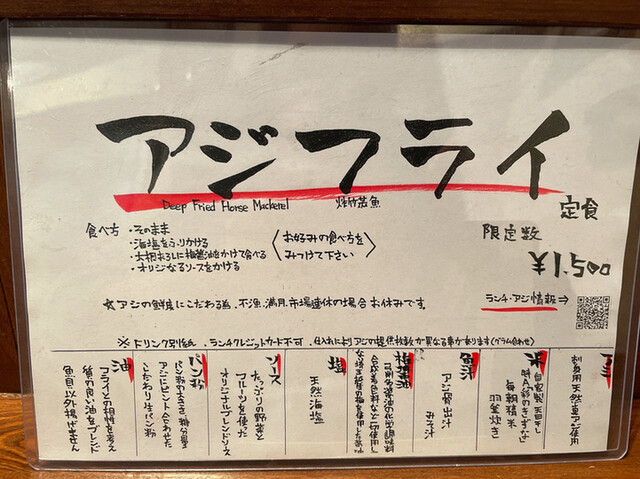 アジフライ
Deep Fried Horse Mackerel
炸竹荚魚
定食
食べ方
・そのまま
・海塩をふりかける
・大根おろしに梅醤油をかけて食べる
・オリジナルソースをかける
お好みの食べ方を
みつけて下さい
限定数
¥1,500
ランチ・アジ情報⇒
☆アジの鮮度にこだわる為、不漁、満月、市場連休の場合お休みです。
※ドリンク別紙、ランチクレジットカード不可、仕入れによりアジの提供枚数が異なる事があります(グラム合わせ)
アジ
刺身用天然真アジ使用
米
自家製天日干し
毎朝精米
羽釜炊き
魚汁
アジ骨出汁
みそ汁
梅醤油
塩
天然海塩
ソース
たっぷりの野菜と
フルーツを使った
オリジナルブレンドソース
パン粉
パン粉の大きさ、糖分量
アジにピントを合わせた
こだわり生パン粉
油
フライとの相性を考え
質の良い油をブレンド
魚貝以外揚げません